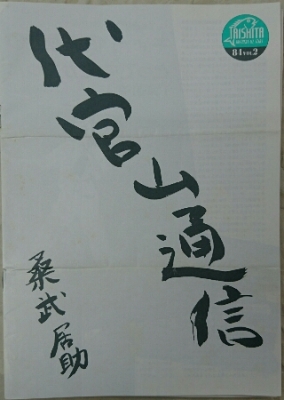 代官山通信
桑武居助
81 Vol.2